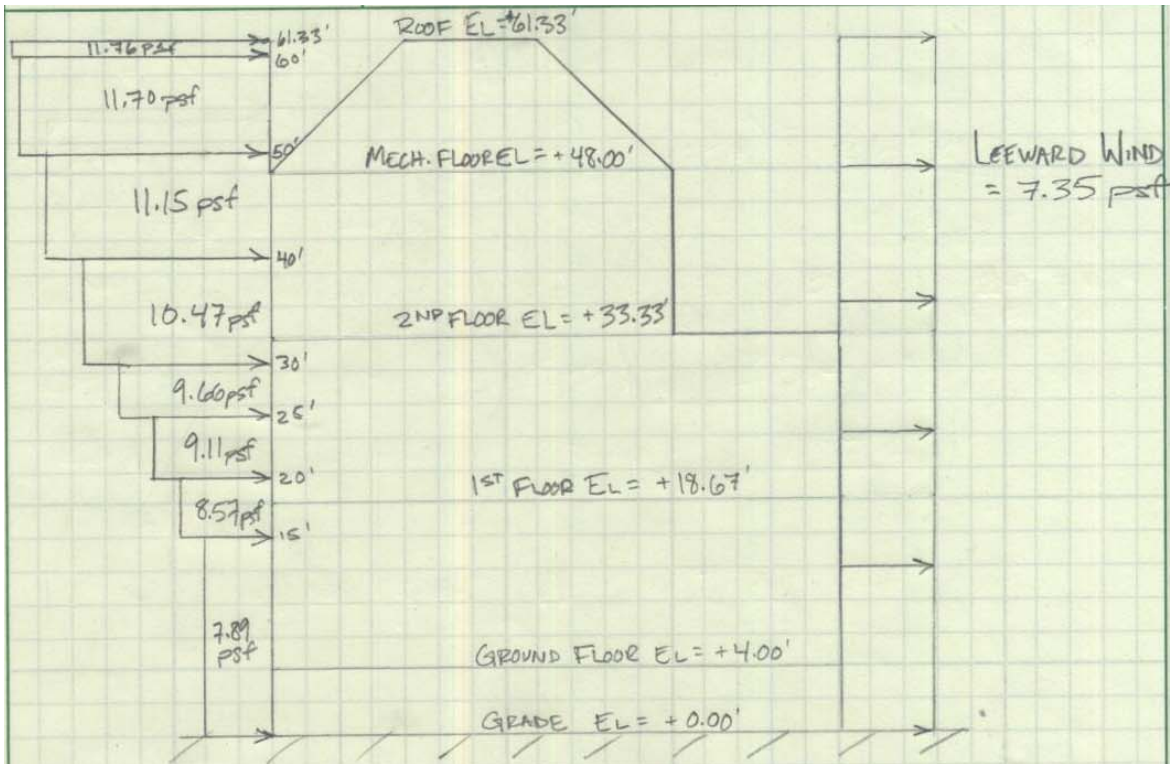 ROOF EL=+61.33'
11.76 psf
61.33'
60'
11.70 psf
50'
MECH. FLOOR EL = +48.00'
LEEWARD WIND
= 7.35 psf
11.15 psf
40'
10.47 psf
2ND FLOOR EL = +33.33'
30'
9.66 psf
25'
9.11 psf
20'
1ST FLOOR EL = +18.67'
8.57 psf
15'
7.89
psf
GROUND FLOOR EL = +4.00'
GRADE EL = +0.00'